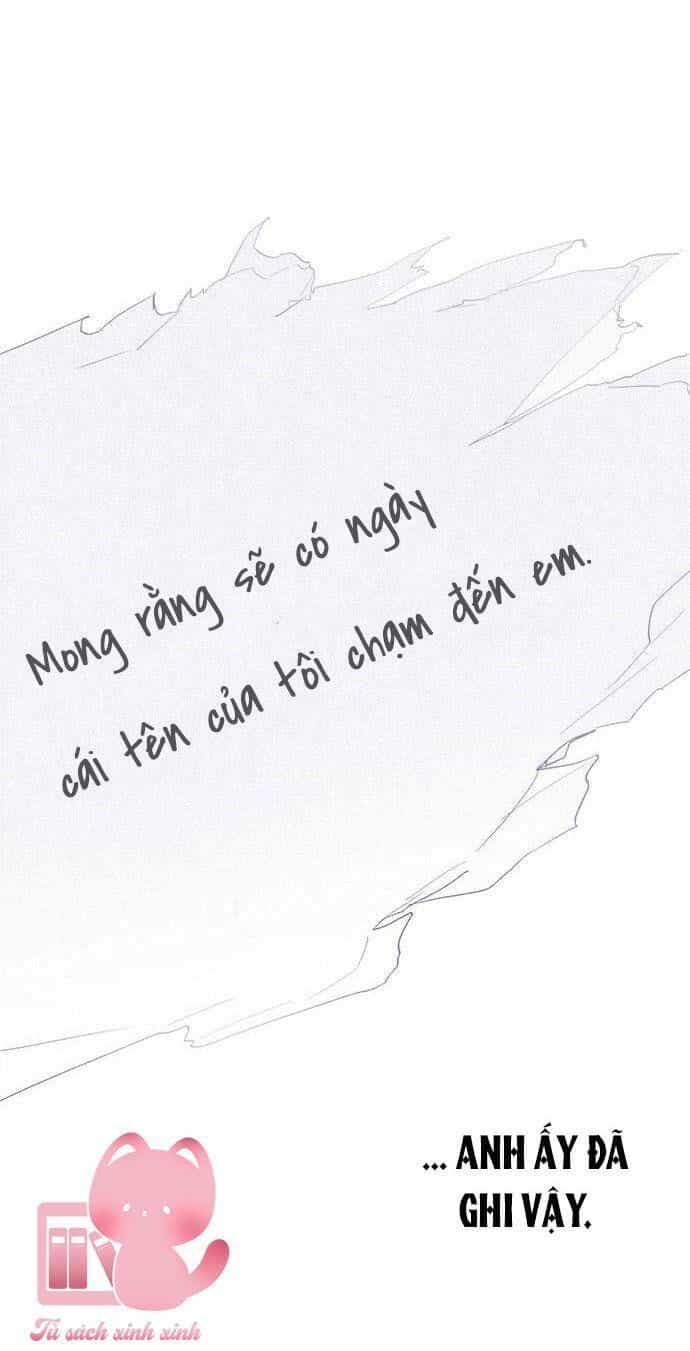 Mong rằng sẽ có ngày
cái tên của tôi chạm đến em.
... ANH ẤY ĐÃ
GHI VẬY.
Tủ sách xinh xinh